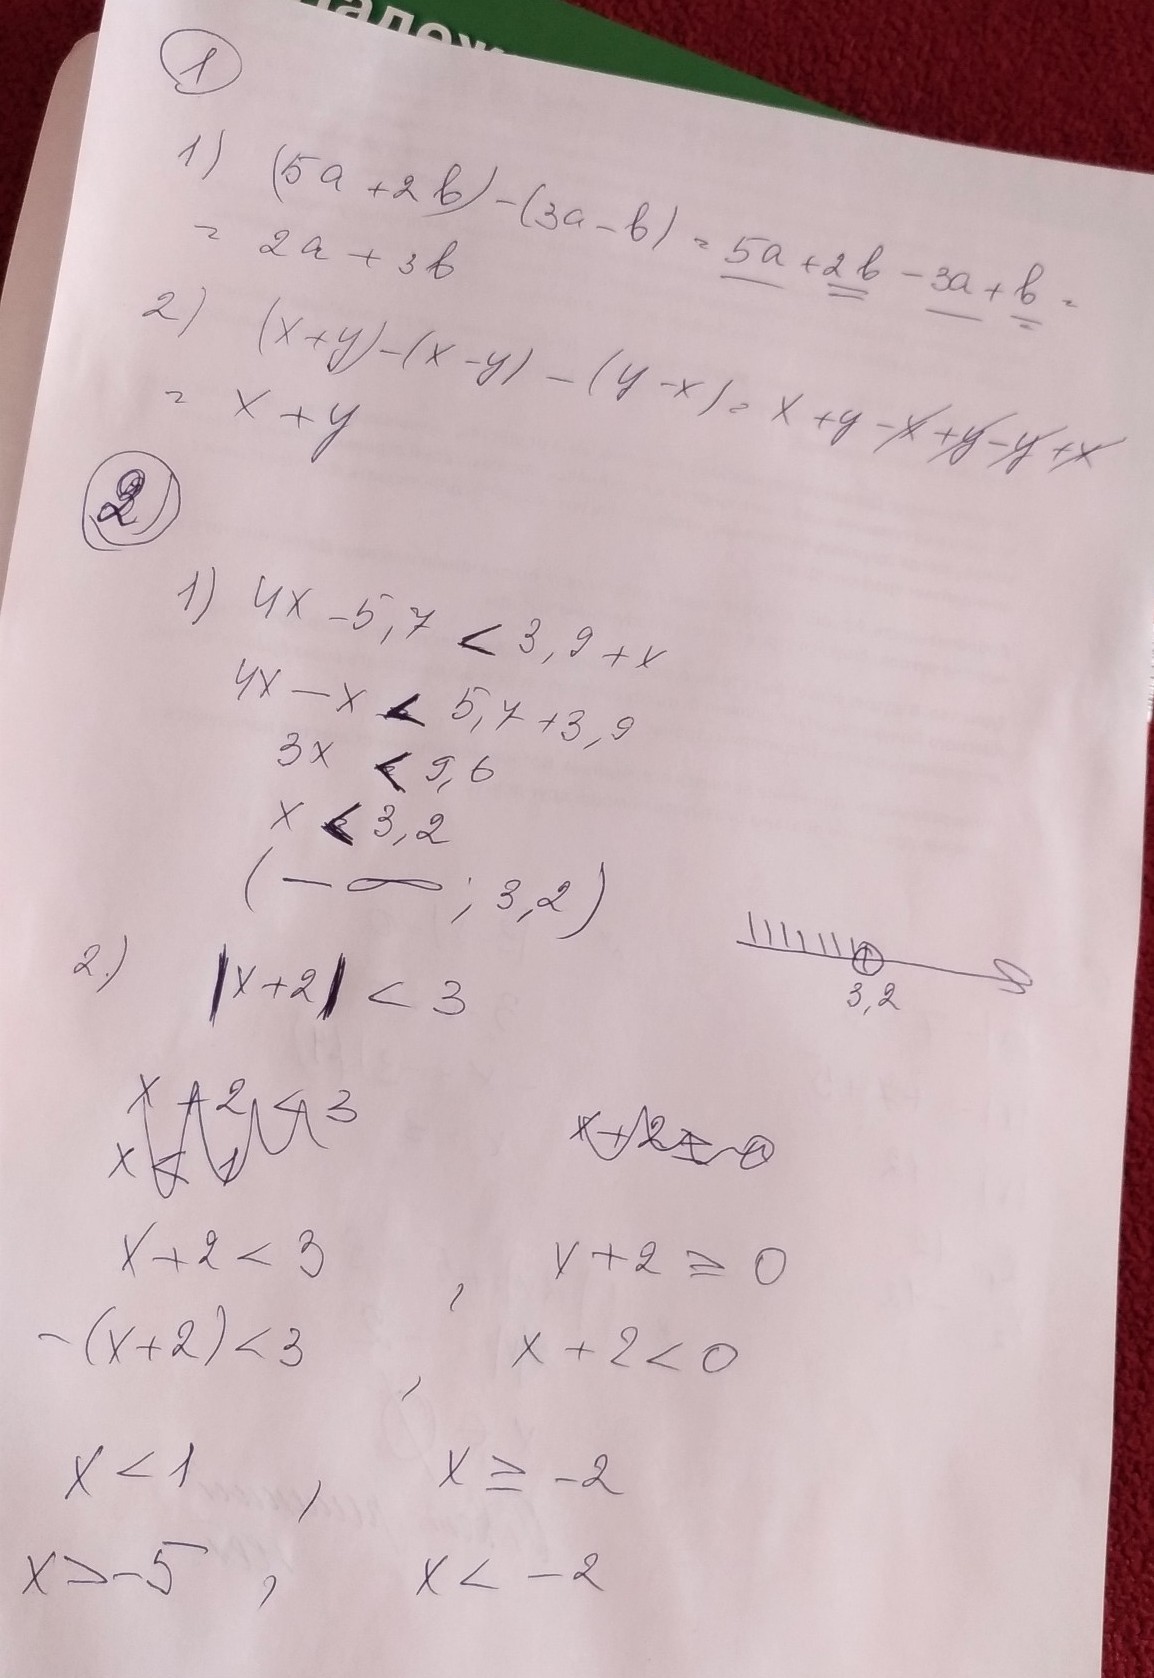 1
1) (5a+2b)-(3a-b)=5a+2b-3a+b=
=2a+3b
2) (x+y)-(x-y)-(y-x)=x+y-x+y-y+x
=x+y
2
1) 4x-5,7<3,9+x
4x-x<5,7+3,9
3x<9,6
x<3,2
(-∞;3,2)
3,2
2.) |x+2|<3
x+2<3
x<1
x+2<3, x+2≥0
-(x+2)<3, x+2<0
x<1, x≥-2
x>-5, x<-2